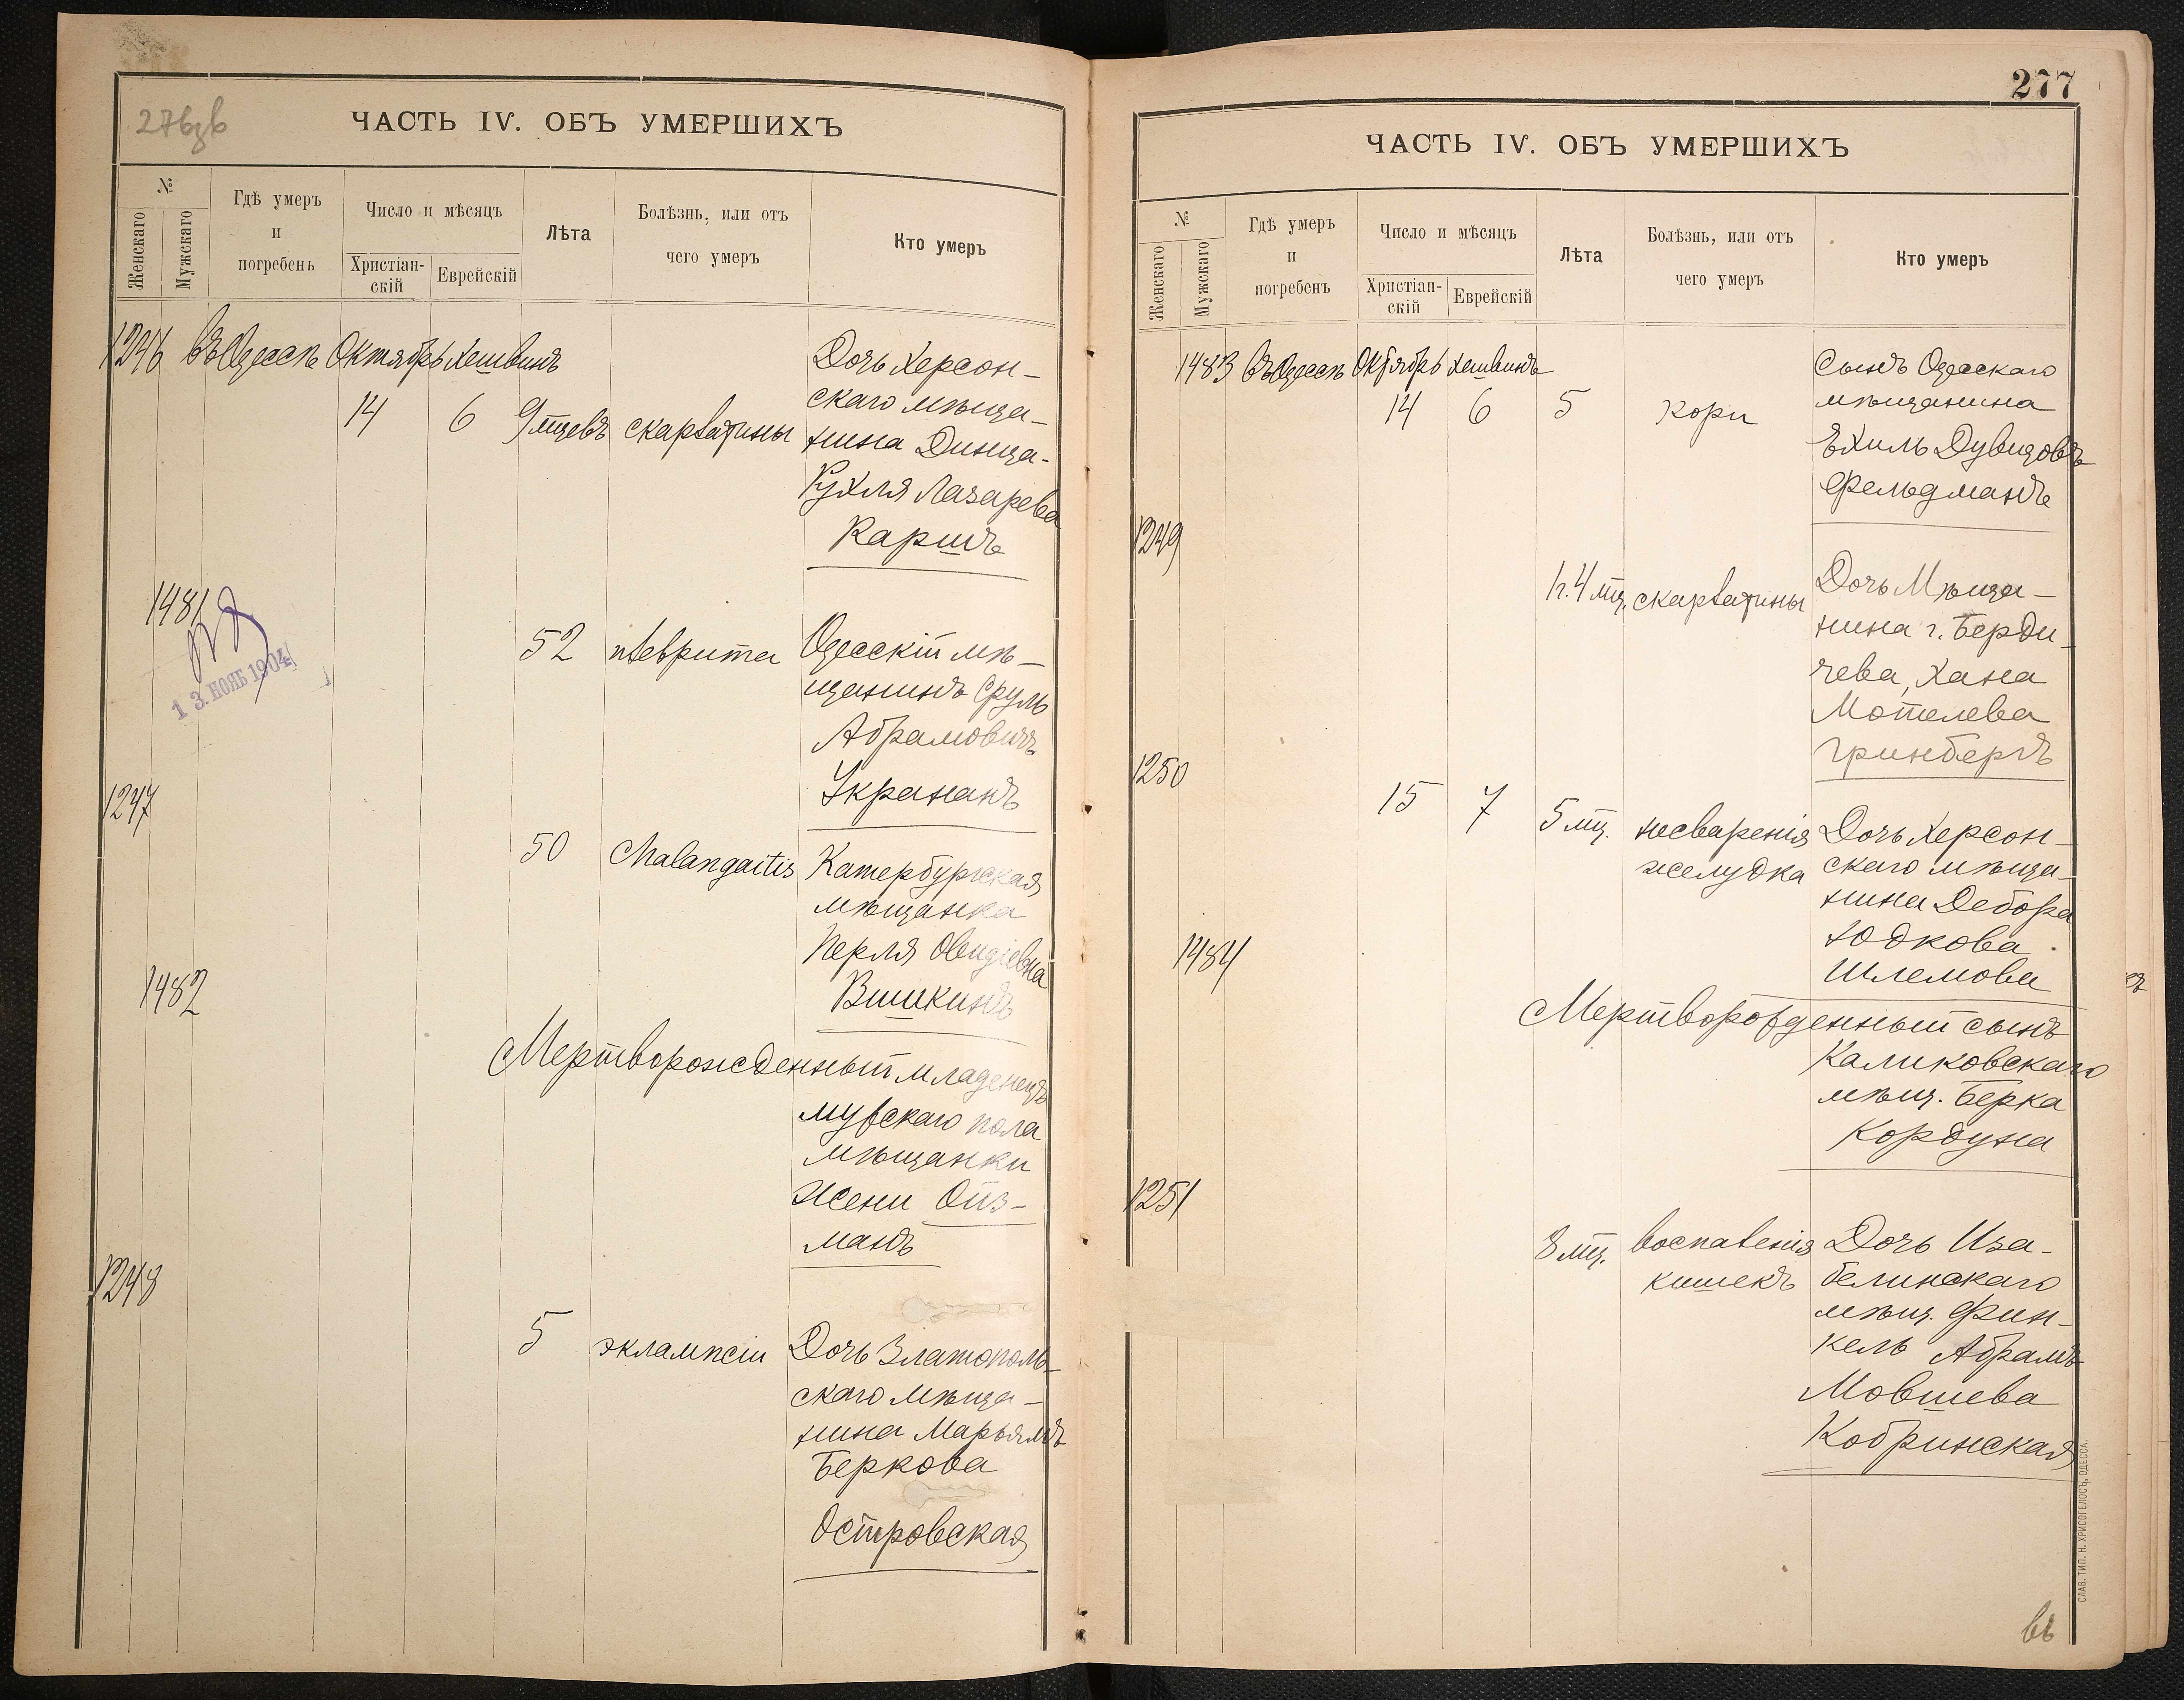 276зв
ЧАСТЬ IV. ОБЪ УМЕРШИХЪ
№
Женскаго
Мужскаго
Гдѣ умеръ
и
погребенъ
Число и мѣсяцъ
Христіан-
скій
Еврейскій
Лѣта
Болѣзнь, или отъ
чего умеръ
Кто умеръ
1246 въ Одессѣ Октябрь Хешвинъ
14 6 9 мцевъ скарлатины
Дочь Херсон-
скаго мѣща-
нина Динца-
Рухля Лазарева
Каршъ
1481
13. НОЯБ 1904
52 плеврита
Одесскій мѣ-
щанинъ Сруль
Абрамовичъ
Укрананъ
1247
50 Chalangaitis
Катербургская
мѣщанка
Перля Овидіевна
Вишкинъ
1482
Мертворожденный младенецъ
мужскаго пола
мѣщанки
Жени Ойз-
манъ
1248
5 эклампсіи
Дочь Златополь-
скаго мѣща-
нина Марьямъ
Беркова
Островская
277
ЧАСТЬ IV. ОБЪ УМЕРШИХЪ
№
Женскаго
Мужскаго
Гдѣ умеръ
и
погребенъ
Число и мѣсяцъ
Христіан-
скій
Еврейскій
Лѣта
Болѣзнь, или отъ
чего умеръ
Кто умеръ
1483 въ Одессѣ Октябрь Хешвинъ
14 6 5 кори
Сынъ Одесскаго
мѣщанина
Ехиль Дувидовъ
Фельдманъ
1249
1 г. 4 мц. скарлатины
Дочь Мѣща-
нина г. Берди-
чева, Хана
Мотелева
Гринбергъ
1250
15 7 5 мц. несваренія
желудка
Дочь Херсон-
скаго мѣща-
нина Дебора
Юдкова
Шлемова
1484
Мертворожденный сынъ
Каликовскаго
мѣщ. Берка
Кордуна
1251
8 мц. воспаленія
кишекъ
Дочь Иза-
белинскаго
мѣщ. Фин-
кель Абрамъ-
Мовшева
Кобринская
СЛАВ. ТИП. Н. ХРИСОГЕЛОСЪ, ОДЕССА.
въ